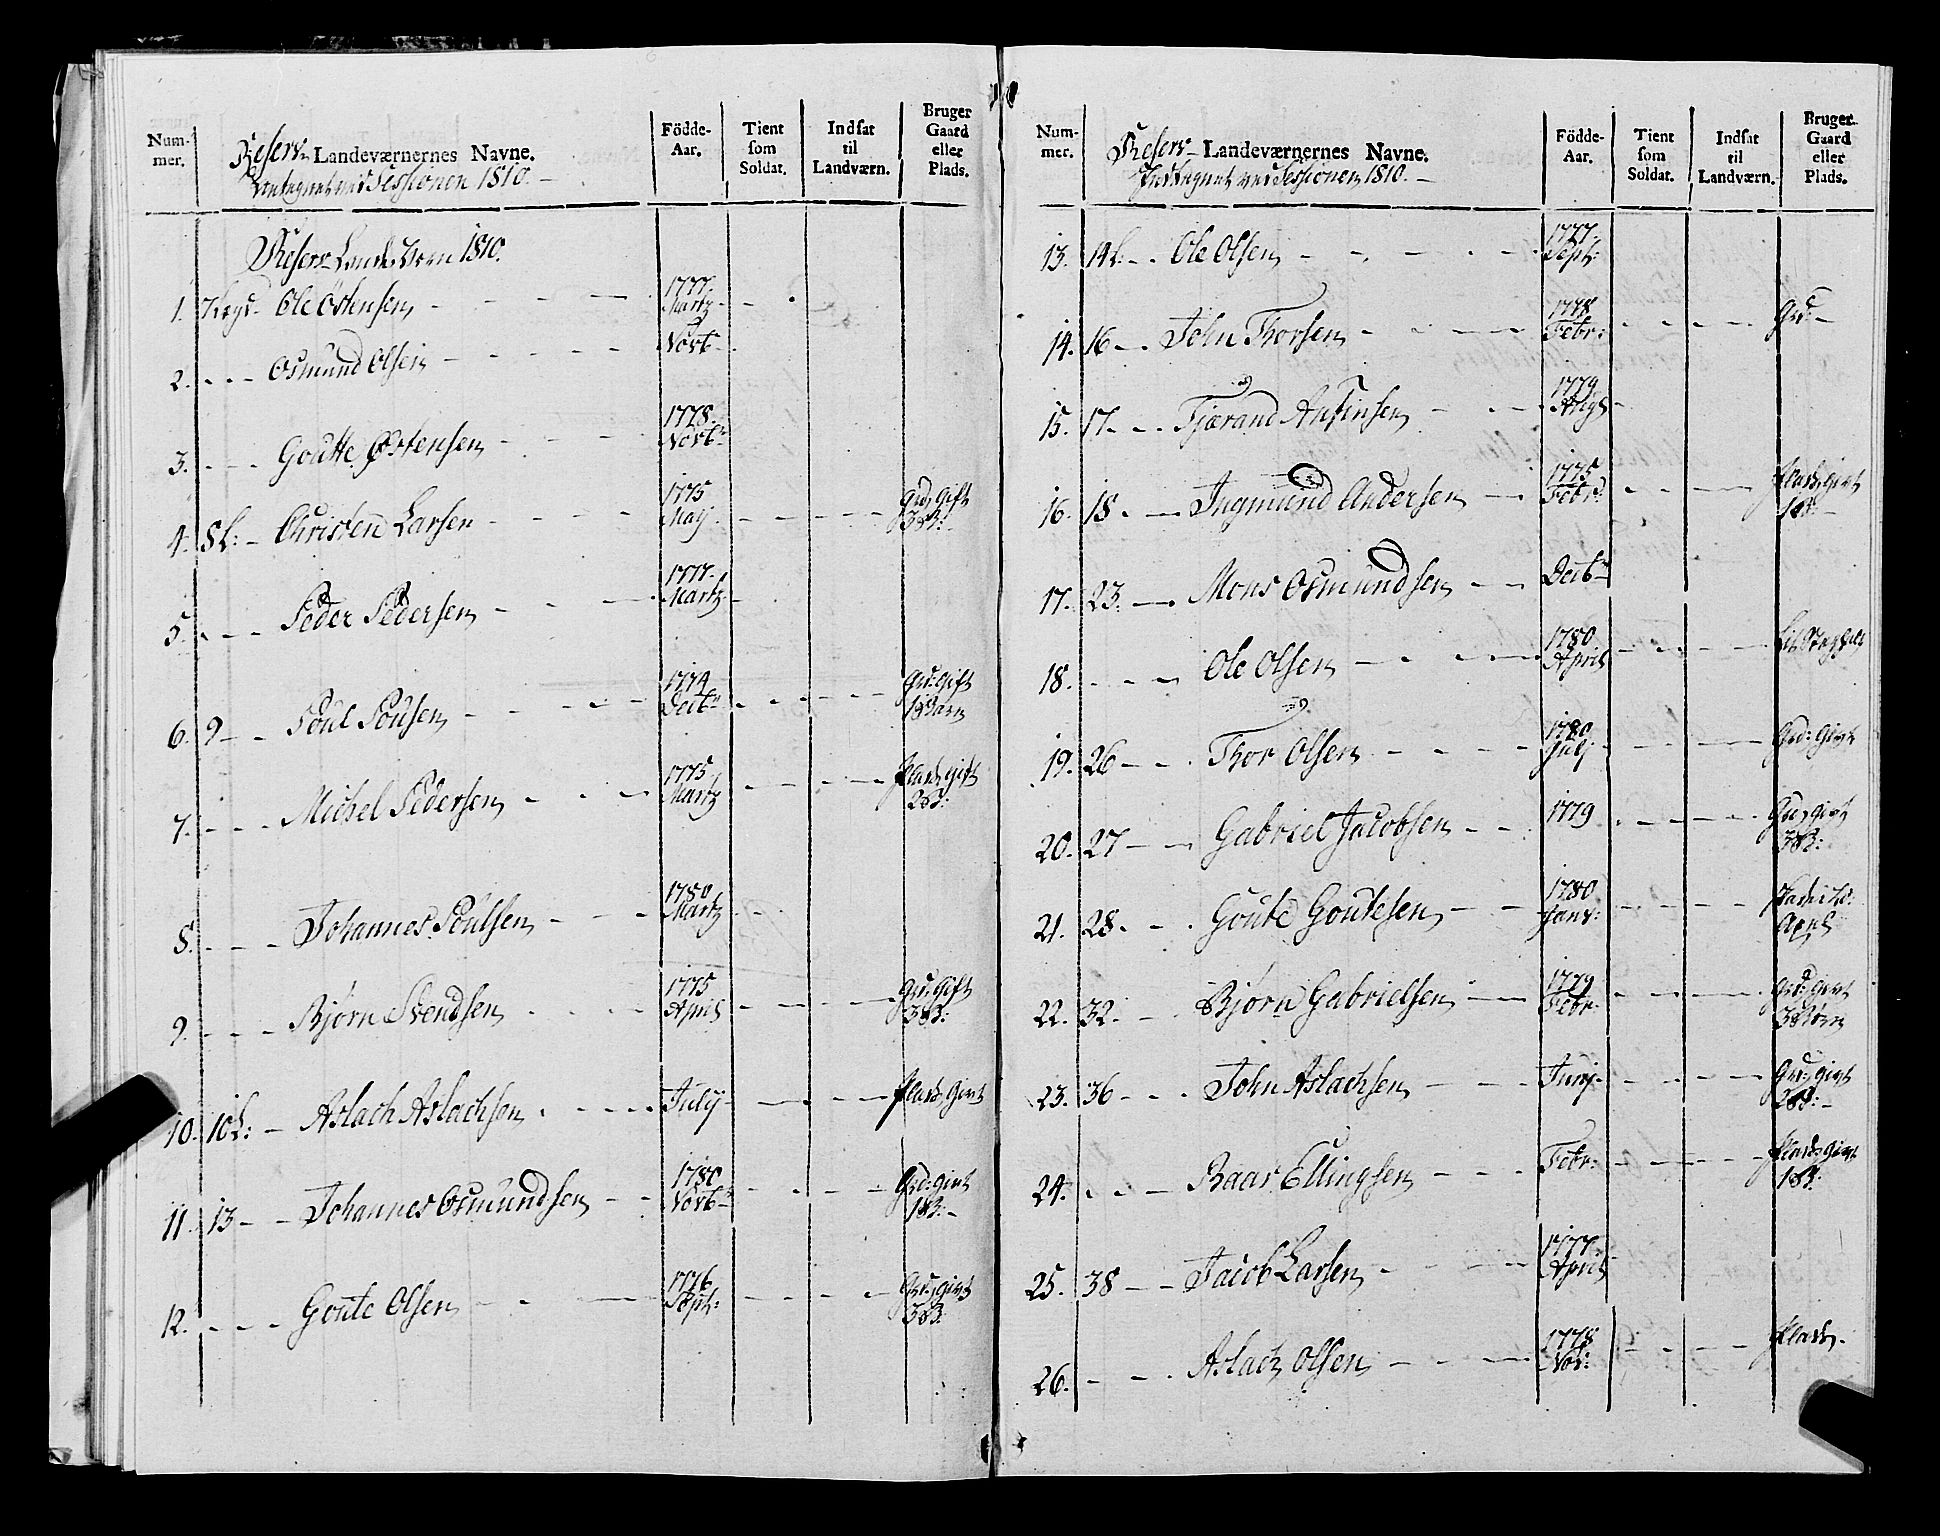 Num-
mer.
Reserv- Landeværnernes Navne.
Antegnet ved Sessionen 1810. -
Födde-
Aar.
Tient
som
Soldat.
Indsat
til
Landværn.
Bruger
Gaard
eller
Plads.
Reserv Landeværn 1810.
1. 7 Lægd - Ole Østensen - 1777. Martz
2. - - - Osmund Olsen - Novb
3. - - - Goutte Østensen - 1778. Novb
4. 8 L: - Christen Larsen - 1775 Maij - Grd, Gift 3 B:
5. - - - Peder Pedersen - 1777. Martz
6. 9 - - Poul Pousen - 1774 Decb - Grd: Gift 1 Barn
7. - - - Michel Pedersen - 1775 Martz - Plads, Gift 2 B:
8. - - - Johannes Poulsen - 1780 Martz
9. - - - Bjørn Svendsen - 1775 April - Grd: Gift 3 B:
10. 10 L: - Aslach Aslachsen - July - Plads, Givt
11. 13 - - Johannes Osmundsen - 1780 Novb - Grd: Givt 1 B: -
12. - - - Goute Olsen - 1776 Sept: - Grd, Givt 3 B:
Num-
mer.
Reserv- Landeværnernes Navne.
Antegnet ved Sessionen 1810. -
Födde-
Aar.
Tient
som
Soldat.
Indsat
til
Landværn.
Bruger
Gaard
eller
Plads.
13. 14 L: - Ole Olsen - 1777. Sept:
14. 16 - - John Thorsen - 1778 Febr: - Grd: -
15. 17. - - Tjærand Anfinsen - 1779 Aug
16. 18. - Ingmund Andersen - 1775 Febr: - Plads, Givt 1 B: -
17. 23. - Mons Osmundsen - Decb
18. - - - Ole Olsen - 1780 April
19. 26 - - Thor Olsen - 1780 July - Grd: Givt
20. 27 - - Gabriel Jacobsen - 1779 - Grd, Givt 3 B:
21. 28. - - Goute Goutesen - 1780 Janv: - Plads
22. 32. - Bjørn Gabrielsen - 1779 Febr - Grd, Givt 3 Børn
23. 36 - - John Aslachsen - Junj - Grd, Givt 2 B: -
24. - - - Baar Ellingsen - Febr: - Plads, Givt 1 B:
25. 38 - - Jacob Larsen - 1777. April
26. - - - Aslach Olsen - 1778 Nov: - Plads.